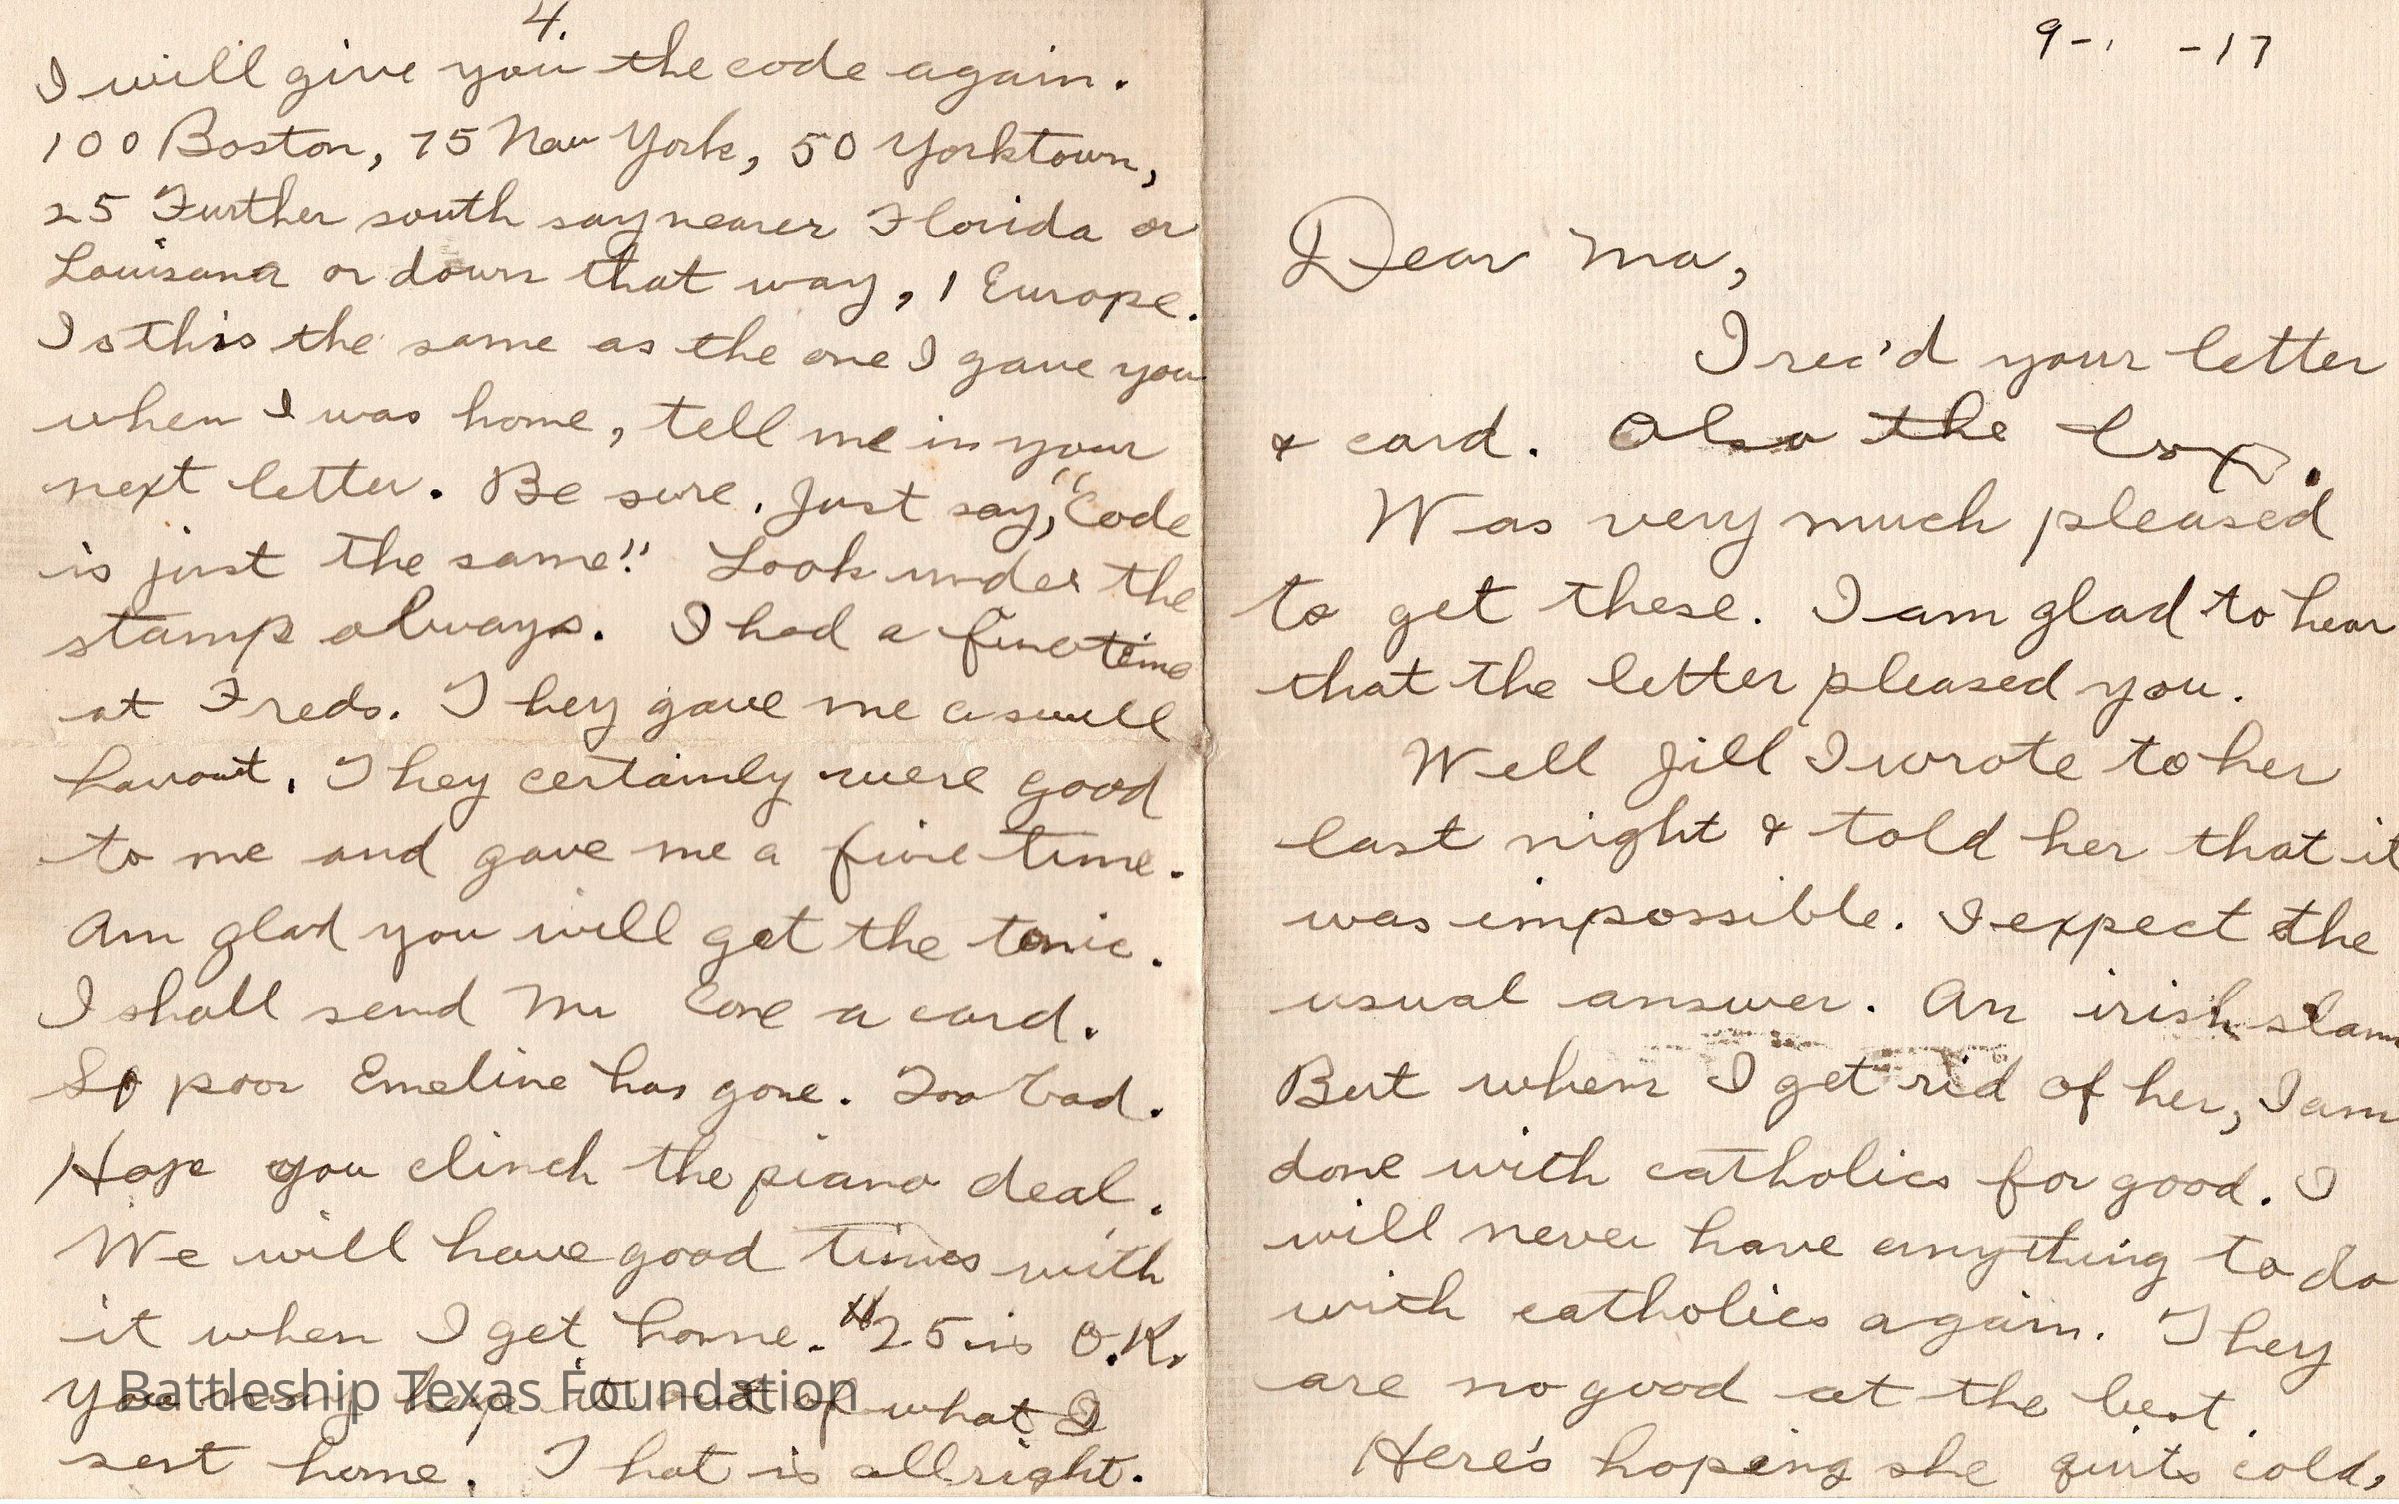 4.
I will give you the code again.
100 Boston, 75 New York, 50 Yorktown,
25 Further south say nearer Florida or
Louisana or down that way, 1 Europe.
Is this the same as the one I gave you
when I was home, tell me in your
next letter. Be sure. Just say, "Code
is just the same!" Look under the
stamp always. I had a fine time
at Freds. They gave me a swell
layout. They certainly were good
to me and gave me a fine time.
Am glad you will get the tonic.
I shall send Mr Cone a card.
So poor Emeline has gone. Too bad.
Hope you clinch the piano deal.
We will have good times with
it when I get home. "25 is O.K.
You may of what I
sent home. That is allright.
Battleship Texas Foundation
9-1 -17
Dear Ma,
I rec'd your letter
& card. Also the box.
Was very much pleased
to get these. I am glad to hear
that the letter pleased you.
Well Jill I wrote to her
last night & told her that it
was impossible. I expect the
usual answer. An irish slam
But when I get rid of her, I am
done with catholics for good. I
will never have anything to do
with catholics again. They
are no good at the best.
Here's hoping she quits cold,